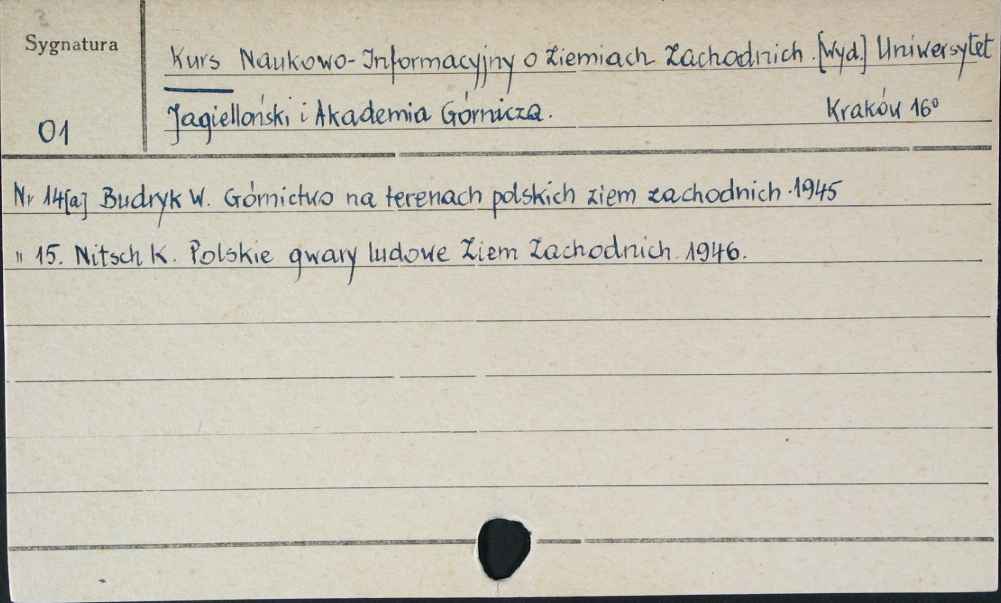 Sygnatura
01
Kurs Naukowo-Informacyjny o Ziemiach Zachodnich. [Wyd.] Uniwersytet
Jagielloński i Akademia Górnicza. Kraków 16°
Nr 14[a] Budryk W. Górnictwo na terenach polskich ziem zachodnich. 1945
" 15. Nitsch K. Polskie gwary ludowe Ziem Zachodnich. 1946.